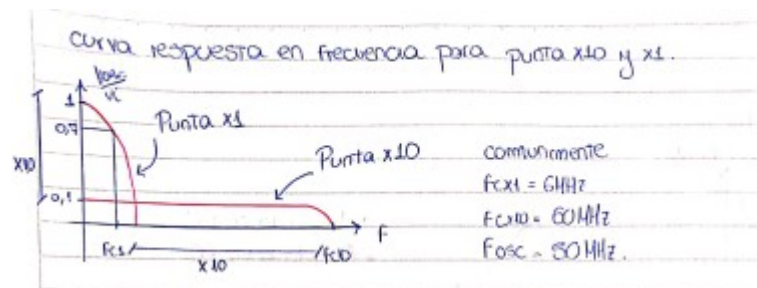 curva respuesta en frecuencia para punta x10 y x1.
Vosc
Vi
1
0,7
Punta x1
x10
Punta x10
0,1
F
Fc1
x10
Fc10
commummente
Fcx1 = 6MHz
Fcx10 = 60MHz
Fosc = 50MHz.